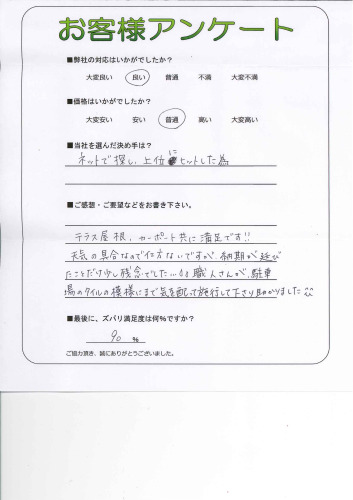 お客様アンケート
■弊社の対応はいかがでしたか?
大変良い 良い 普通 不満 大変不満
■価格はいかがですか?
大変安い 安い 普通 高い 大変高い
■当社を選んだ決め手は?
ネットで探し、上位にヒットした為
■ご感想・ご要望などをお書き下さい。
テラス屋根、カーポート共に満足です!!
天気の具合なので仕方ないですが、納期が延び
たことだけ少し残念でした... 職人さんが、駐車
場のタイルの模様にまで気を配って施行して下さり助かりました
■最後に、ズバリ満足度は何%ですか?
90 %
ご協力頂き、誠にありがとうございました。